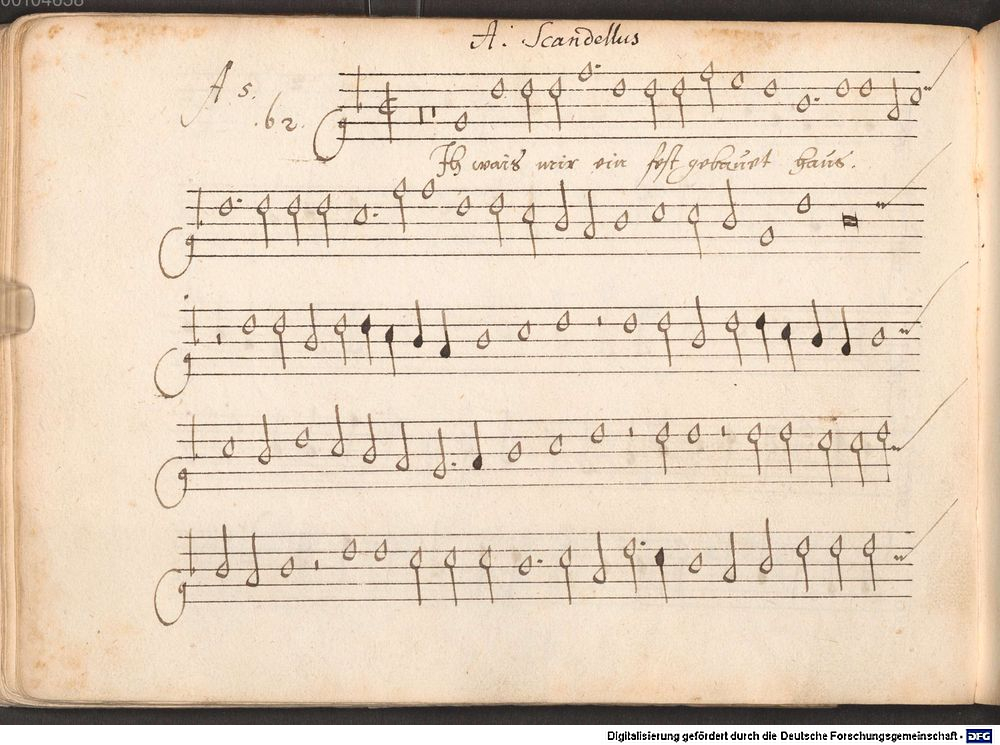 00104638
A. Scandellus
A 5.
.62.
Ih wais mir ein fest gebauet haus.
Digitalisierung gefördert durch die Deutsche Forschungsgemeinschaft - DFG